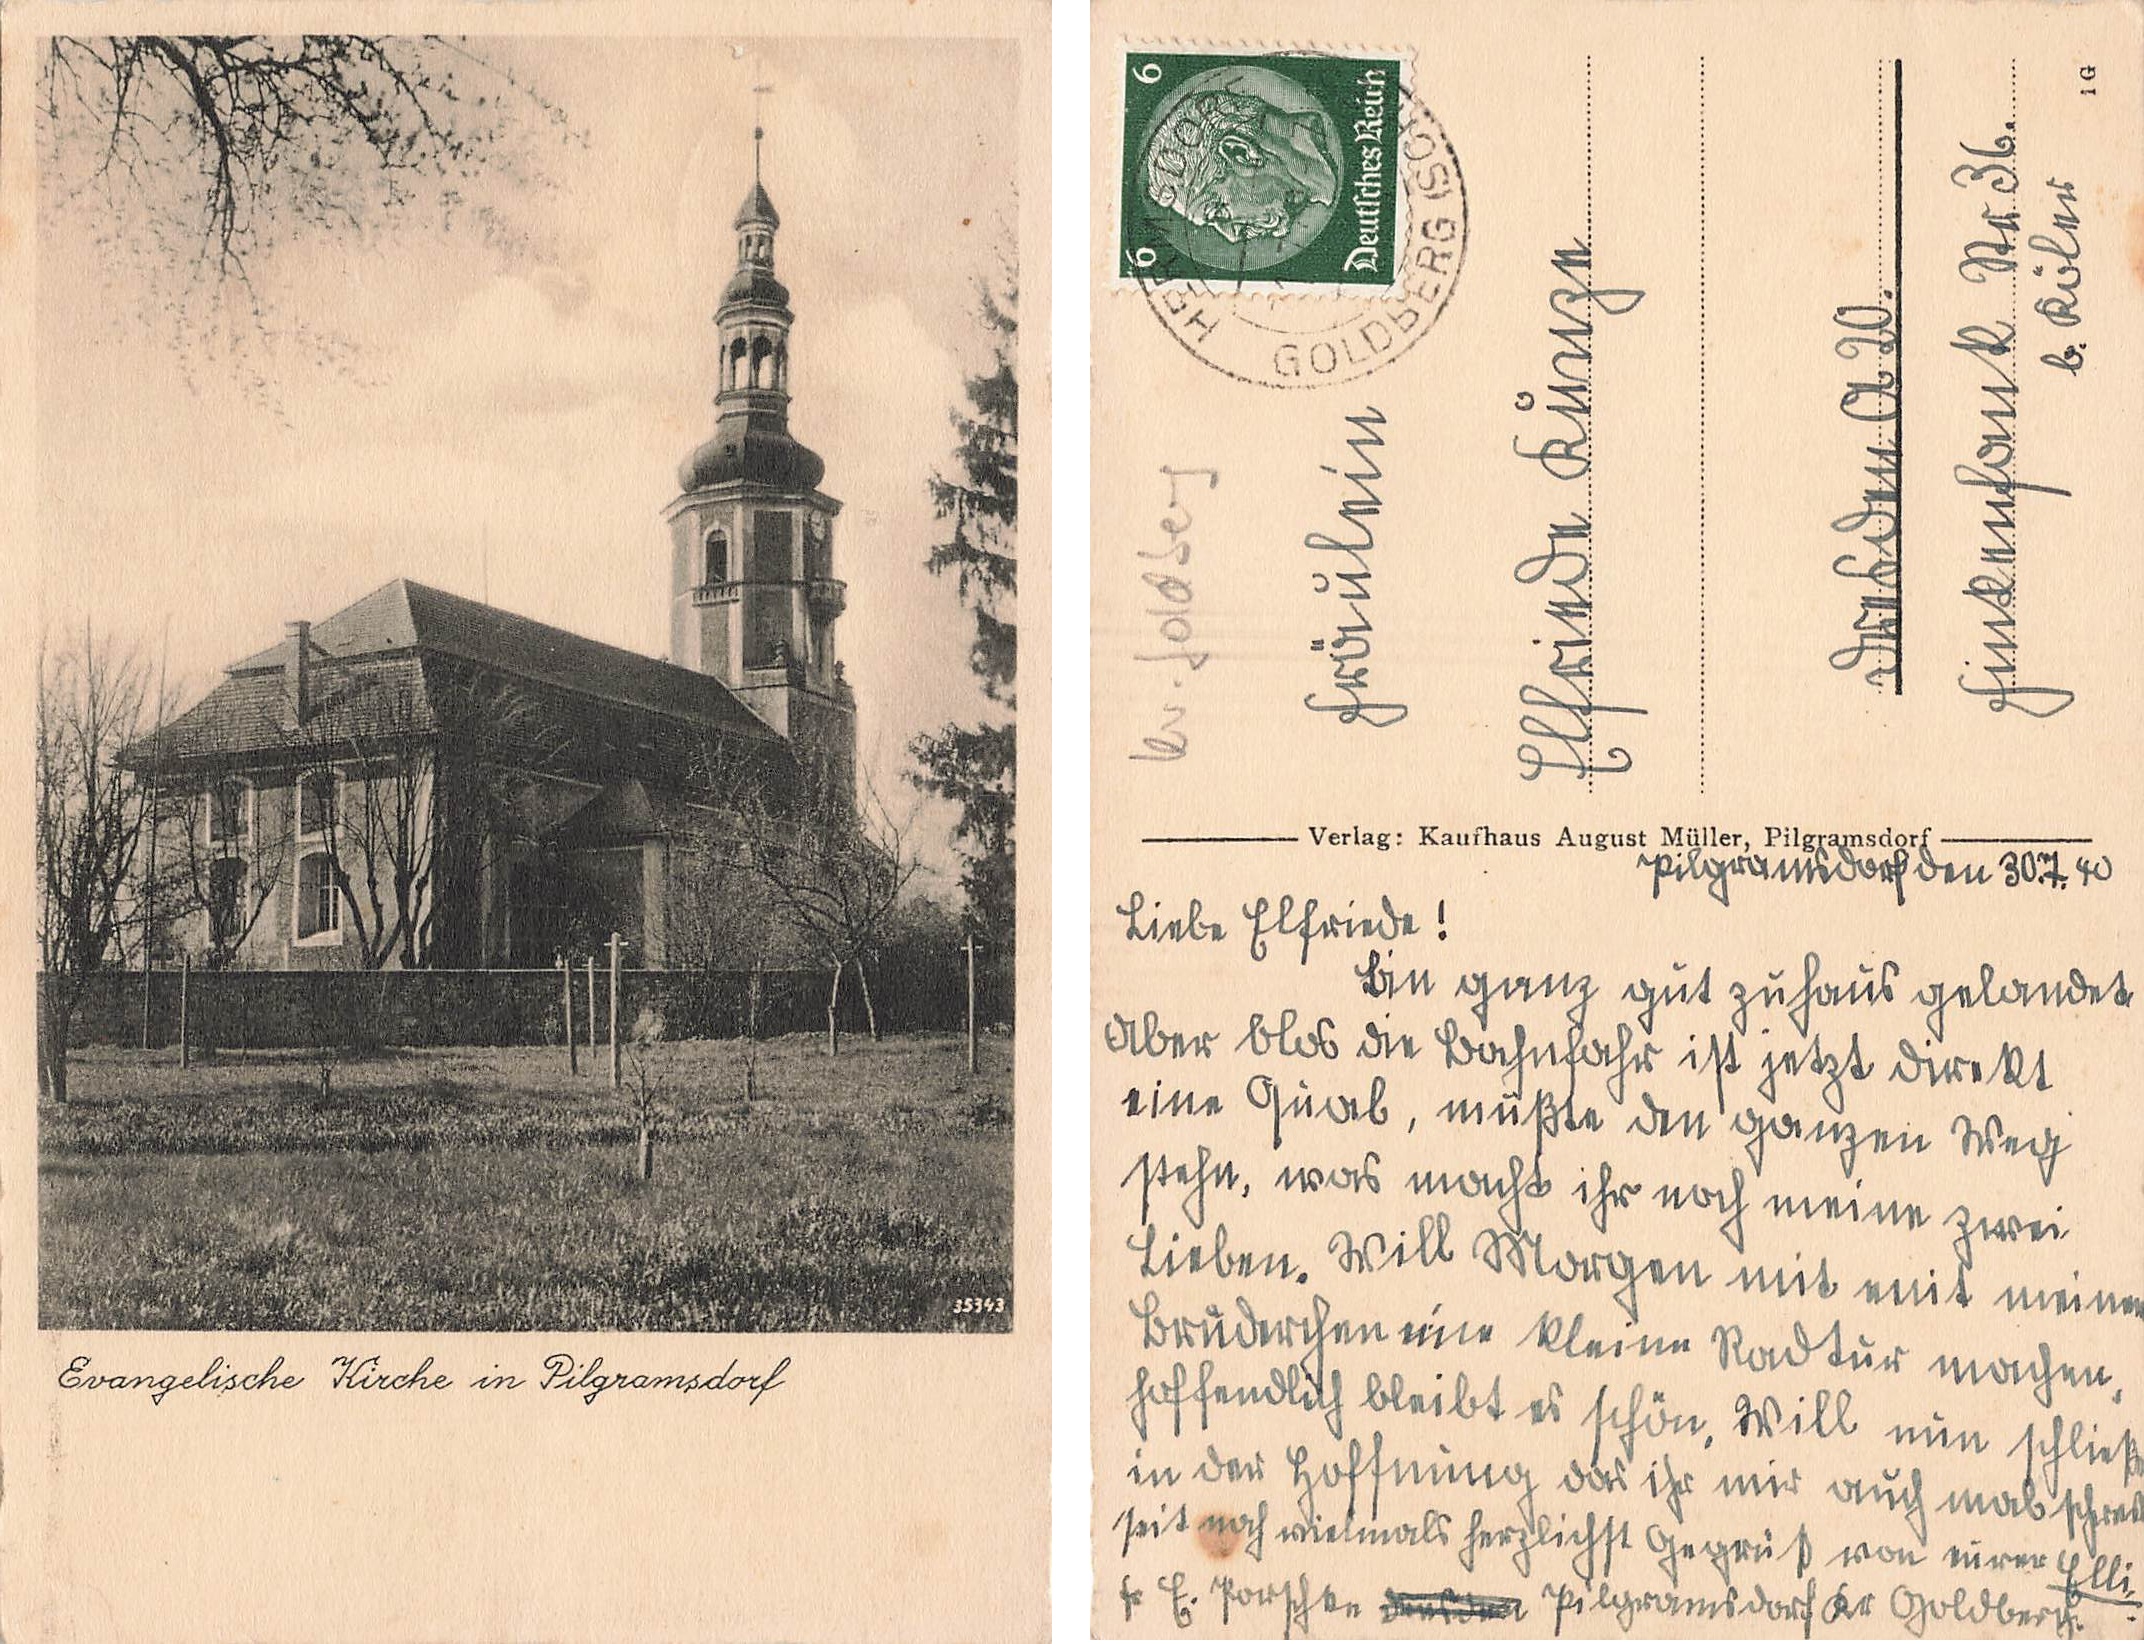 35343
Evangelische Kirche in Pilgramsdorf
6 6
Deutsches Reich
GOLDBERG (SCH
Kr. Goldberg
Fräulein
Elfriede Künze
Dresden A 20.
Finkenfank Str 36.
b. Kölner
1G
Verlag: Kaufhaus August Müller, Pilgramsdorf
Pilgramsdorf den 30.7.40
Liebe Elfriede!
Bin ganz gut zuhaus gelandet
Aber blos die Bahnfahr ist jetzt direkt
eine Qual, müßte den ganzen Weg
stehn, was macht ihr noch meine zwei
Lieben. Will Morgen mit mit meinen
Brüderchen eine kleine Radtur machen,
hoffendlich bleibt es schön. Will nun schließ
in der Hoffnung das ihr mir auch mal schreib
seit noch vielmals herzlichst Gegrüß von eurer Elli.
E. Porschke Pilgramsdorf Kr Goldberg.